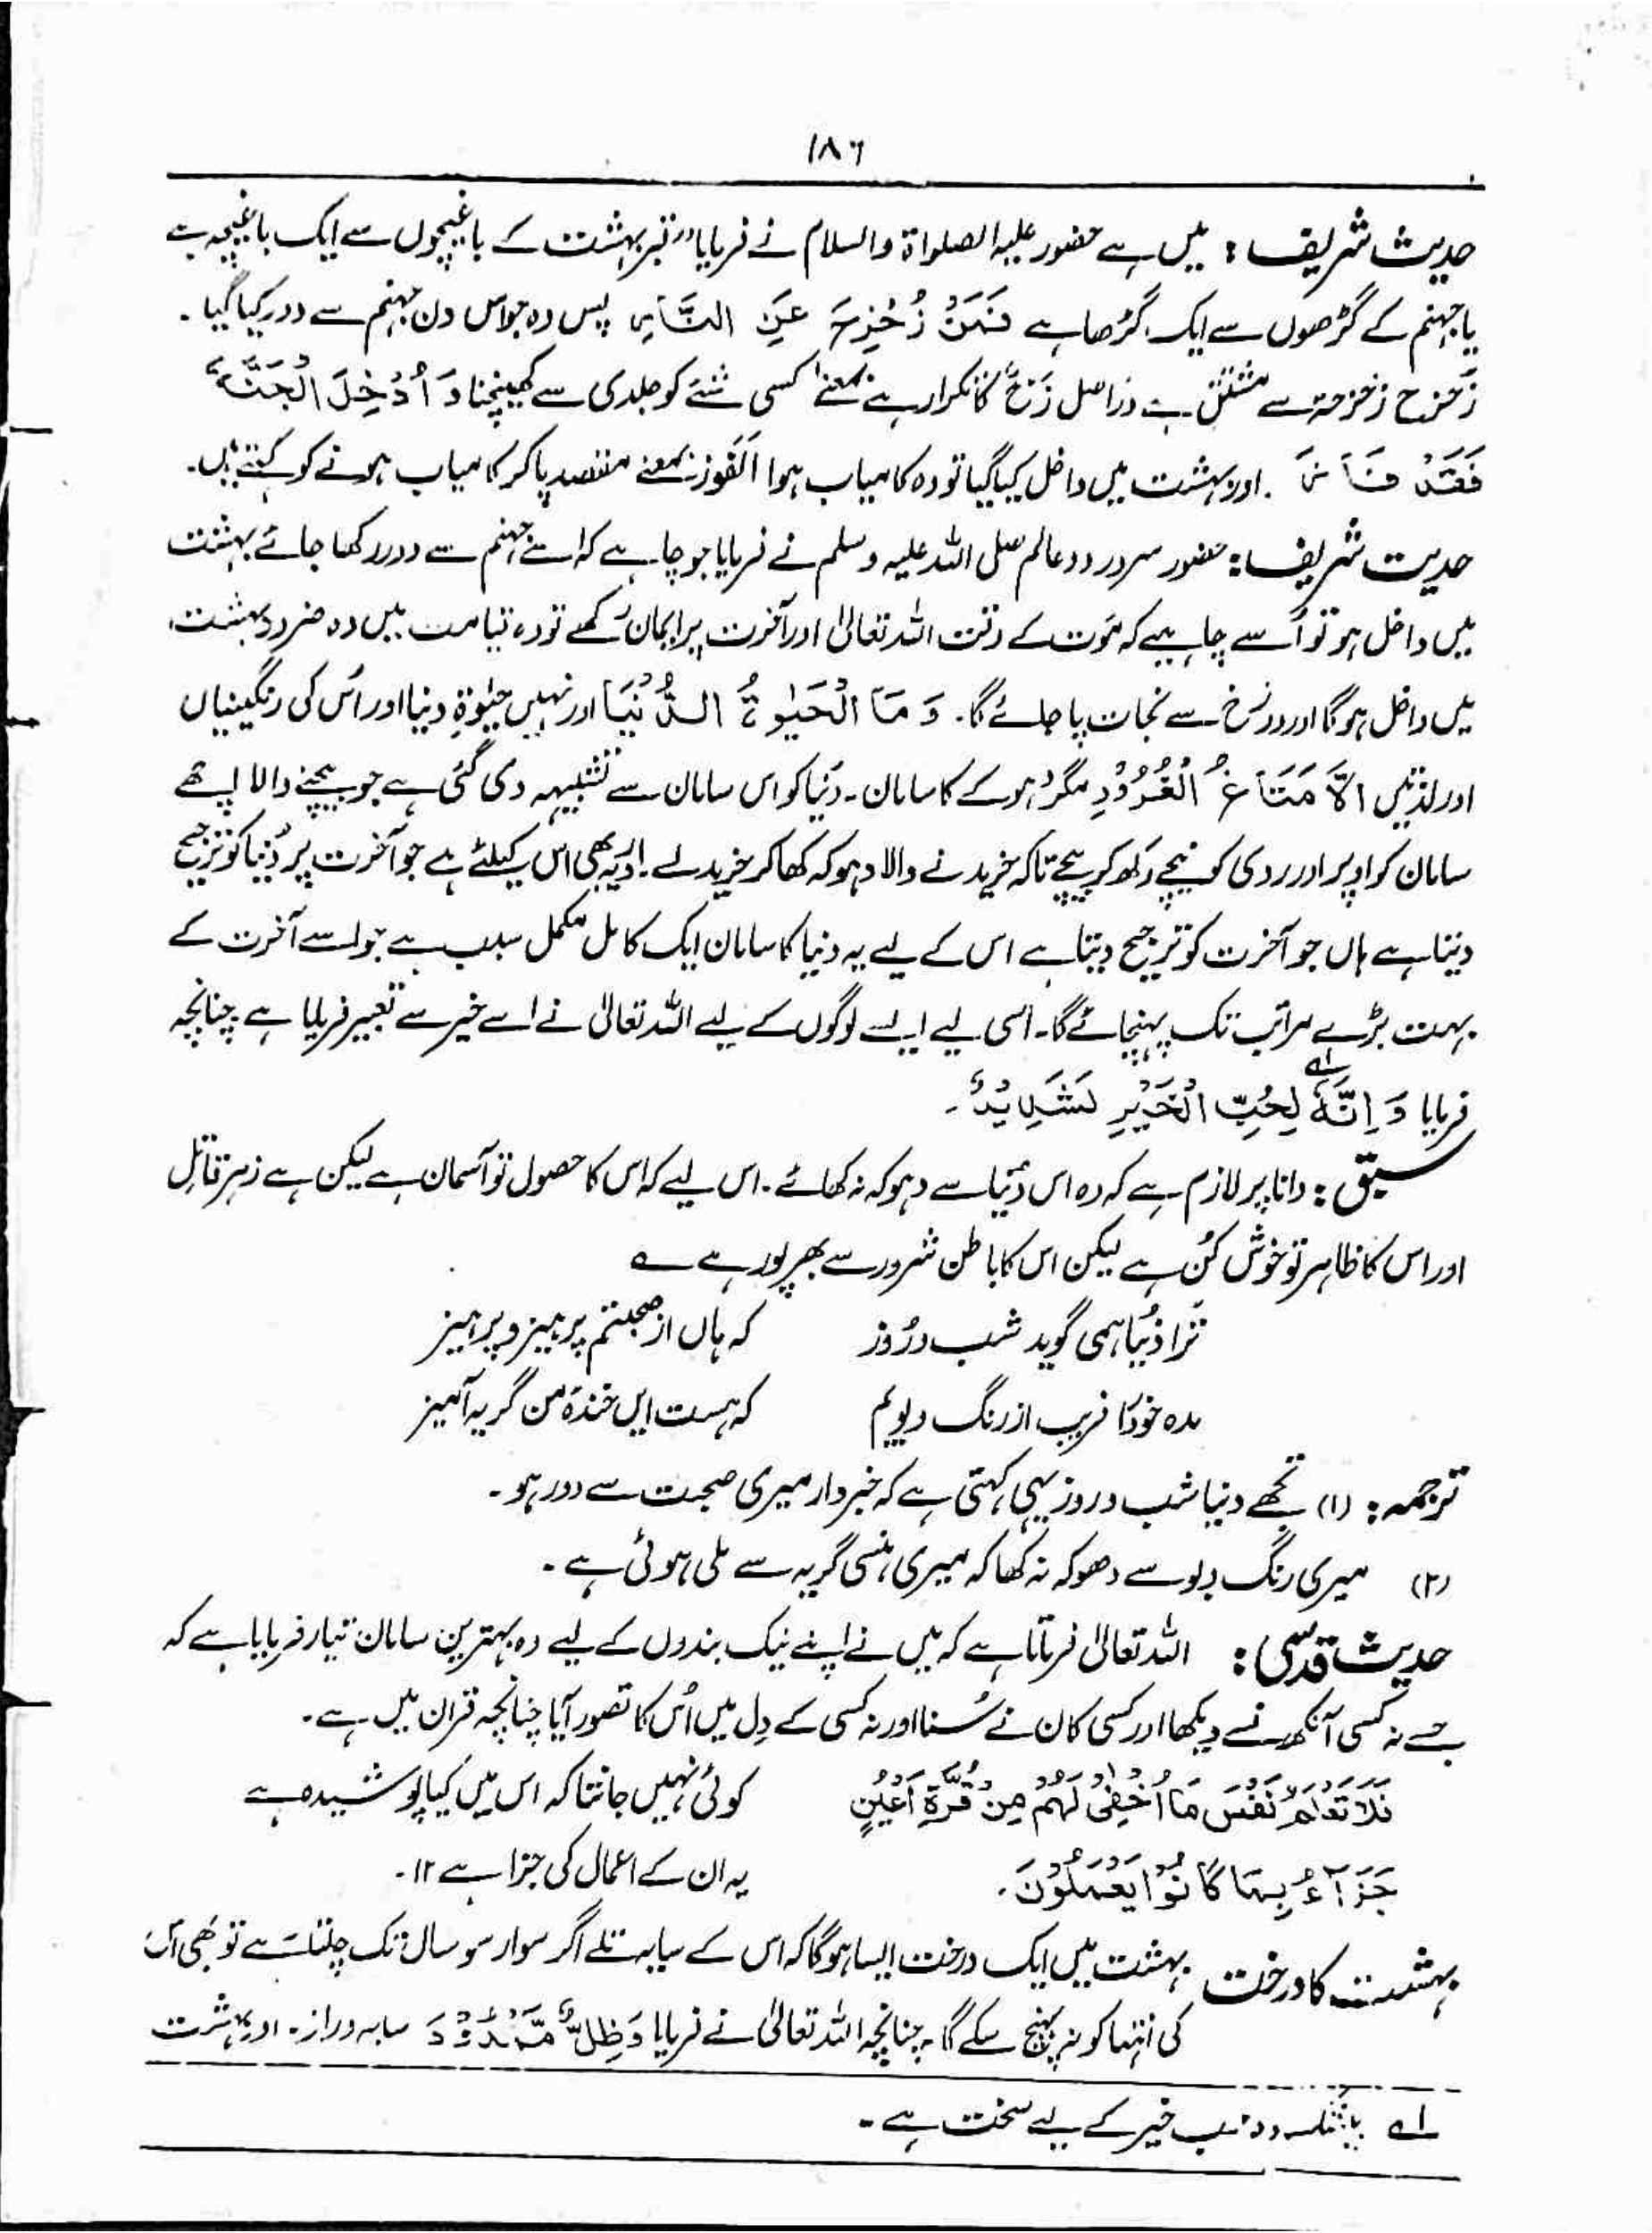 ۱۸۶
حدیث شریف : میں ہے حضور علیہ الصلواۃ والسلام نے فرمایا "قبر بہشت کے باغیچوں سے ایک باغیچہ ہے
یا جہنم کے گڑھوں سے ایک گڑھا ہے فَمَنْ زُحْزِحَ عَنِ النَّارِ پس وہ جو اس دن جہنم سے دور کیا گیا ۔
زحزح زحزحۃ سے مشتق ہے دراصل زَحّ کا تکرار ہے بمعنے کسی شئے کو جلدی سے کھینچنا وَ اُدْخِلَ الْجَنَّۃَ
فَقَدْ فَازَ ۔ اور بہشت میں داخل کیا گیا تو وہ کامیاب ہوا اَلْفَوز بمعنے مقصد پا کر کامیاب ہونے کو کہتے ہیں۔
حدیث شریف : حضور سرور دو عالم صلی اللہ علیہ وسلم نے فرمایا جو چاہے کہ اسے جہنم سے دور رکھا جائے بہشت
میں داخل ہو تو اُسے چاہیے کہ موت کے وقت اللہ تعالیٰ اور آخرت پر ایمان رکھے تو وہ قیامت میں وہ ضرور بہشت
میں داخل ہوگا اور دوزخ سے نجات پا جائے گا ۔ وَ مَا الْحَیٰوۃُ الدُّنْیَا اور نہیں حیٰوۃِ دنیا اور اُس کی رنگینیاں
اور لذتیں اِلَّا مَتَاعُ الْغُرُوْرِ مگر دہوکے کا سامان ۔ دُنیا کو اس سامان سے تشبیہہ دی گئی ہے جو بیچنے والا اچھے
سامان کو اوپر اور ردی کو نیچے رکھ کر بیچے تاکہ خریدنے والا دہوکہ کھا کر خریدلے ۔ اور یہ بھی اس کیلئے ہے جو آخرت پر دُنیا کو ترجیح
دیتا ہے ہاں جو آخرت کو ترجیح دیتا ہے اس کے لیے یہ دنیا کا سامان ایک کامل مکمل سبب ہے جو اسے آخرت کے
بہت بڑے مراتب تک پہنچائے گا ۔ اسی لیے ایسے لوگوں کے لیے اللہ تعالیٰ نے اسے خیر سے تعبیر فرمایا ہے چنانچہ
فرمایا وَ اِنَّہٗ لِحُبِّ الْخَیْرِ لَشَدِیْدٌ ۔ لہ
سبق : دانا پر لازم ہے کہ وہ اس دُنیا سے دہوکہ نہ کھائے ۔ اس لیے کہ اس کا حصول تو آسان ہے لیکن ہے زہر قاتل
اور اس کا ظاہر تو خوش کُن ہے لیکن اس کا باطن شرور سے بھرپور ہے ؎
ترا دُنیا ہمی گوید شب و رُوز کہ ہاں از صحبتم پرہیز و پرہیز
مدہ خود را فریب از رنگ و بویم کہ ہست ایں خندہ من گریہ آمیز
ترجمہ : (۱) تجھے دنیا شب و روز یہی کہتی ہے کہ خبردار میری صحبت سے دور ہو ۔
(۲) میری رنگ و بو سے دھوکہ نہ کھا کہ میری ہنسی گریہ سے ملی ہوئی ہے ۔
حدیث قدسی : اللہ تعالیٰ فرماتا ہے کہ میں نے اپنے نیک بندوں کے لیے وہ بہترین سامان تیار فرمایا ہے کہ
جسے نہ کسی آنکھ نے دیکھا اور کسی کان نے سُنا اور نہ کسی کے دِل میں اُس کا تصور آیا چنانچہ قران میں ہے ۔
فَلَا تَعْلَمُ نَفْسٌ مَا اُخْفِیَ لَہُمْ مِنْ قُرَّۃِ اَعْیُنٍ کوئی نہیں جانتا کہ اس میں کیا پوشیدہ ہے
جَزَآءً بِمَا کَانُوْا یَعْمَلُوْنَ ۔ یہ ان کے اعمال کی جزا ہے ۱۲ ۔
بہشت کا درخت بہشت میں ایک درخت ایسا ہوگا کہ اس کے سایہ تلے اگر سوار سو سال تک چلتا رہے تو بھی اُس
کی انتہا کو نہ پہنچ سکے گا ۔ چنانچہ اللہ تعالیٰ نے فرمایا وَظِلٍّ مَّمْدُوْدَ سایہ دراز ۔ اور بہشت
لہ خیر کے لیے سخت ہے ۔